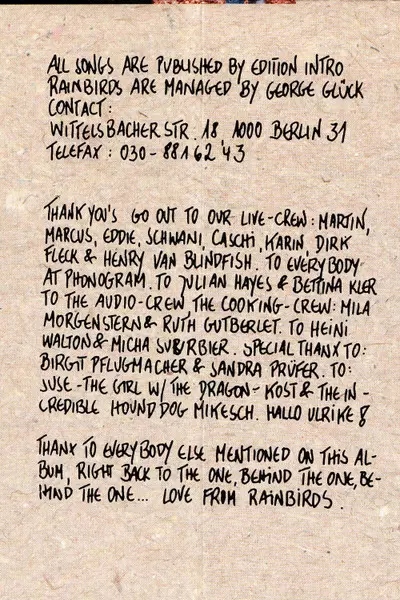 ALL SONGS ARE PUBLISHED BY EDITION INTRO
RAINBIRDS ARE MANAGED BY GEORGE GLÜCK
CONTACT:
WITTELSBACHER STR. 18 1000 BERLIN 31
TELEFAX: 030-8816243
THANK YOU'S GO OUT TO OUR LIVE-CREW: MARTIN,
MARCUS, EDDIE, SCHWANI, CASCHI, KARIN, DIRK
FLECK & HENRY VAN BLINDFISH. TO EVERYBODY
AT PHONOGRAM. TO JULIAN HAYES & BETTINA KLER
TO THE AUDIO-CREW THE COOKING-CREW: MILA
MORGENSTERN & RUTH GUTBERLET. TO HEINI
WALTON & MICHA SURBIER. SPECIAL THANX TO:
BIRGIT PFLUGMACHER & SANDRA PRÜFER. TO:
SUSE-THE GIRL W/ THE DRAGON-KOST & THE IN-
CREDIBLE HOUND DOG MIKESCH. HALLO ULRIKE!
THANX TO EVERYBODY ELSE MENTIONED ON THIS AL-
BUM, RIGHT BACK TO THE ONE, BEHIND THE ONE, BE-
HIND THE ONE... LOVE FROM RAINBIRDS.